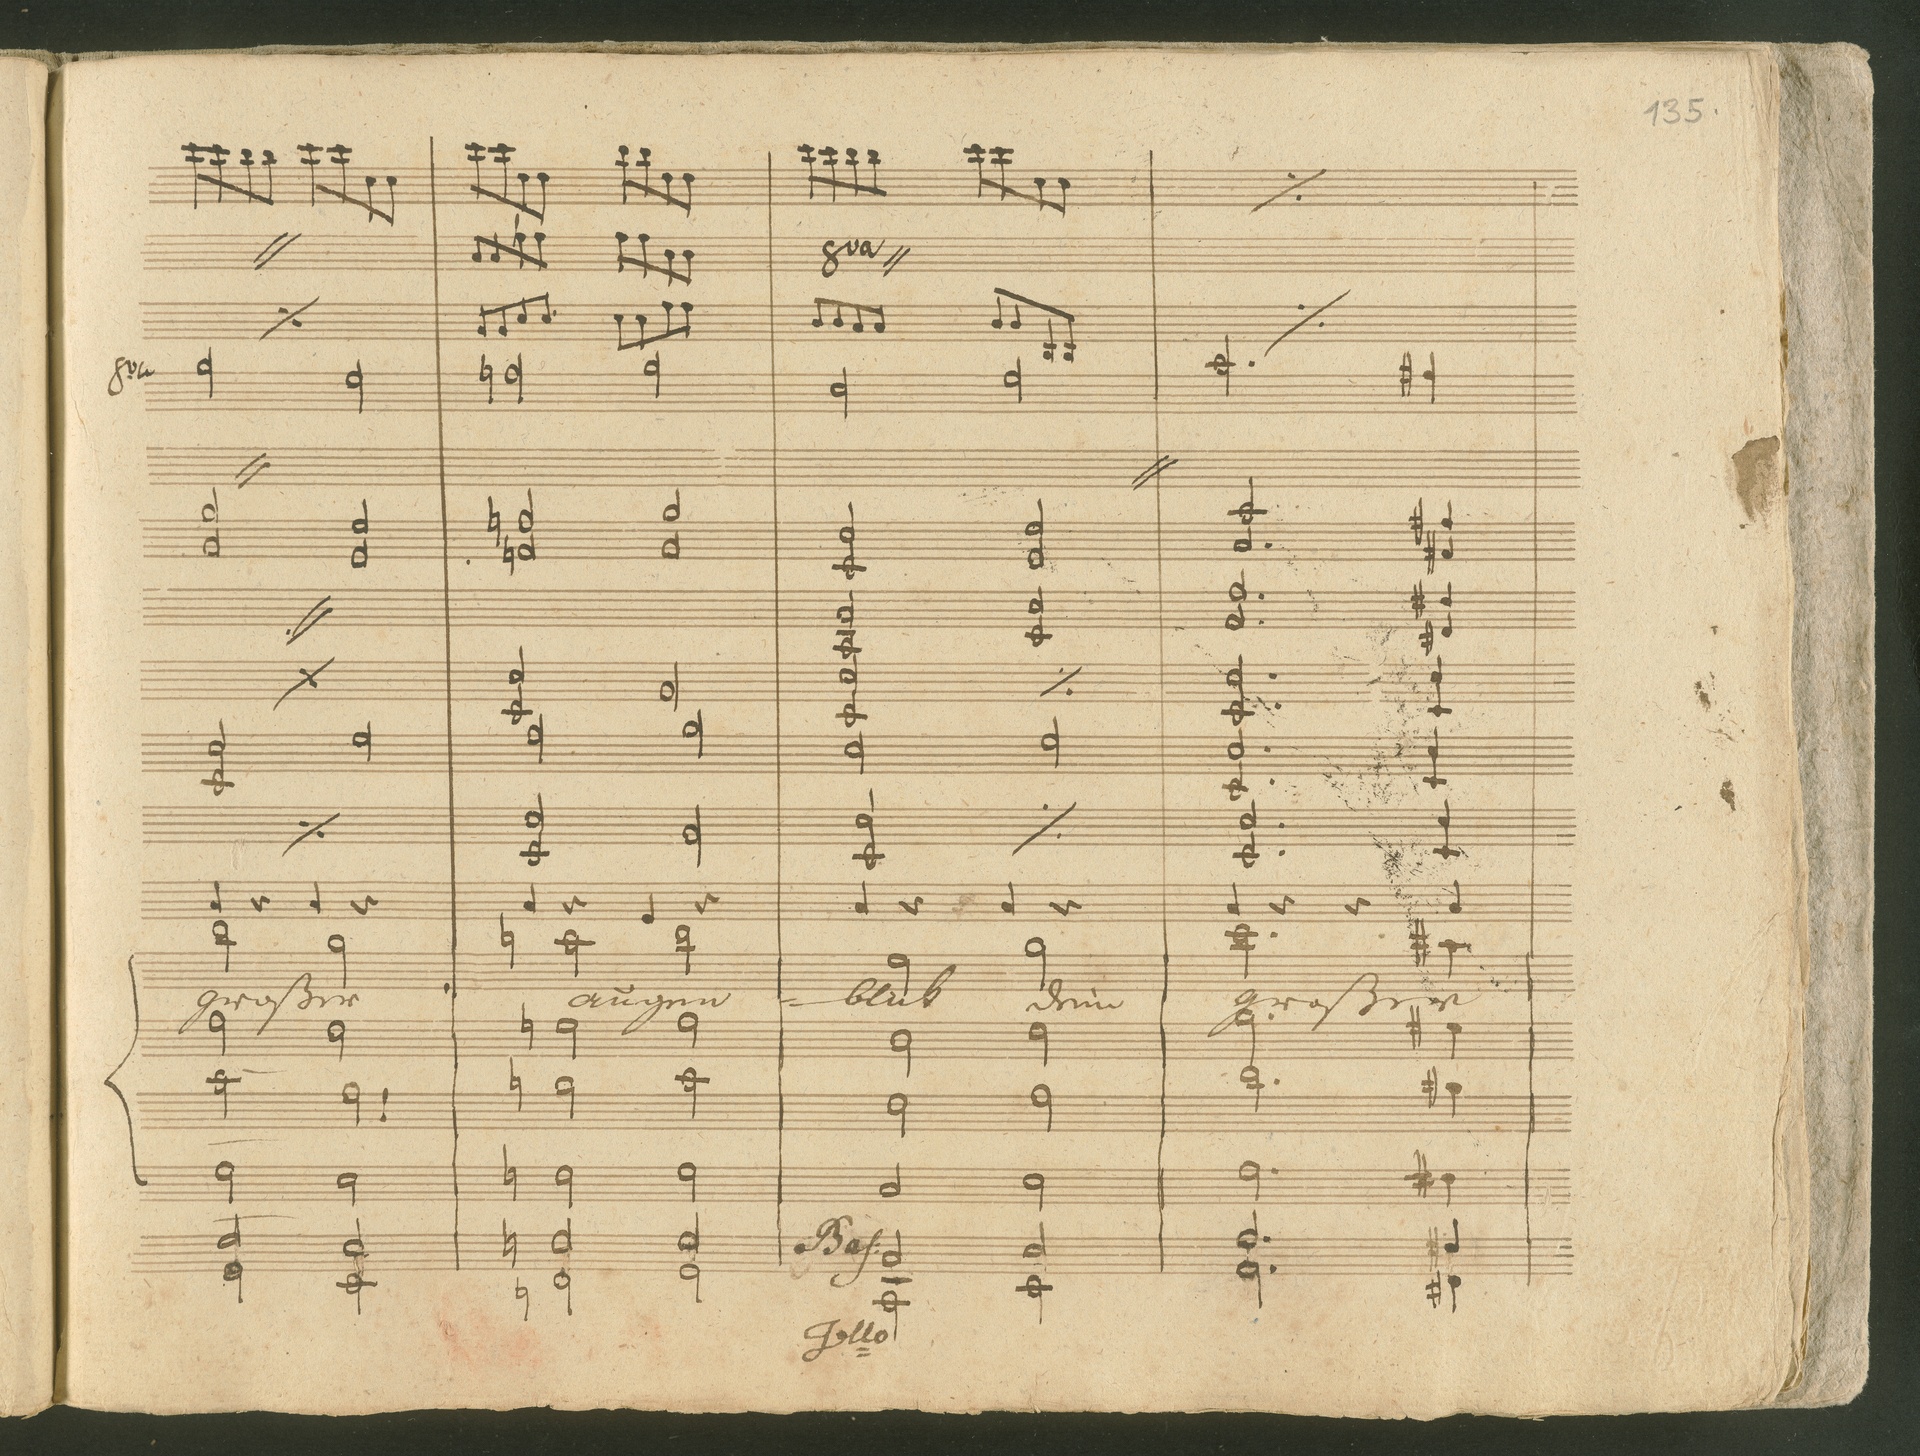 135.
8va
8va
großer augen = blik dein großer
Baß:
Cello